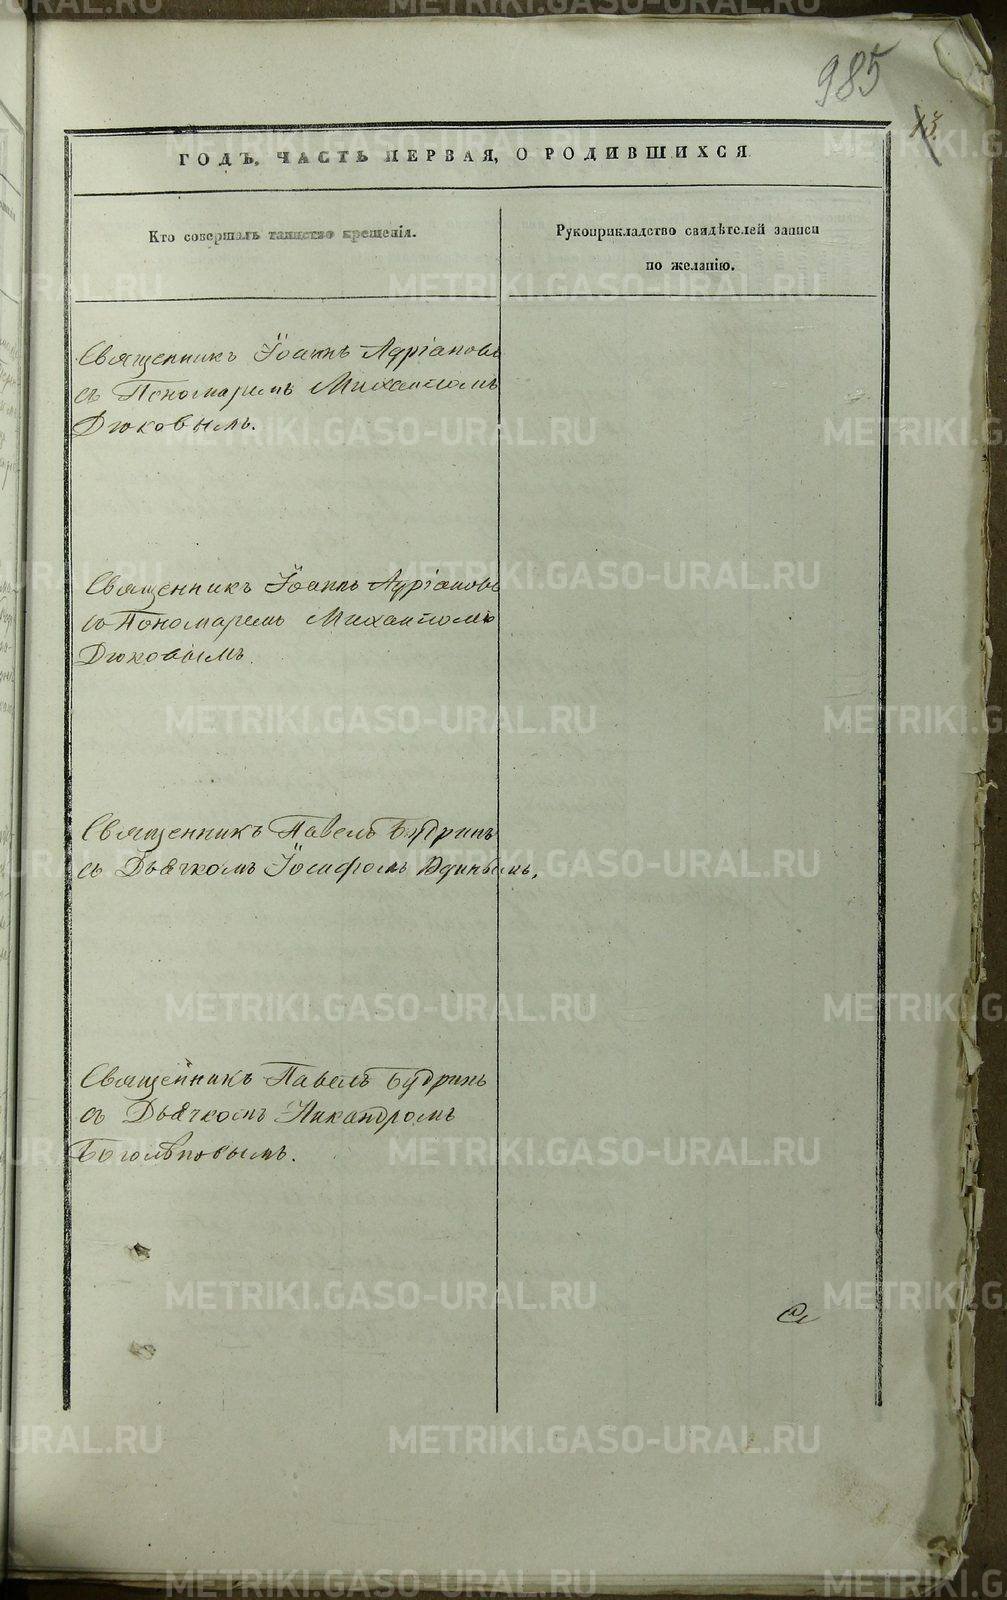 985
ГОДЪ, ЧАСТЬ ПЕРВАЯ, О РОДИВШИХСЯ
Кто совершалъ таинство крещенія.
Рукоприкладство свидѣтелей записи
по желанію.
Священникъ Іоаннъ Адріановъ
съ Пономаремъ Михаиломъ
Дюковымъ.
Священникъ Іоаннъ Адріановъ
съ Пономаремъ Михаиломъ
Дюковымъ.
Священникъ Павелъ Будринъ
съ Дьячкомъ Іосифомъ
Священникъ Павелъ Будринъ
съ Дьячкомъ Никандромъ
Боголѣповымъ.
METRIKI.GASO-URAL.RU